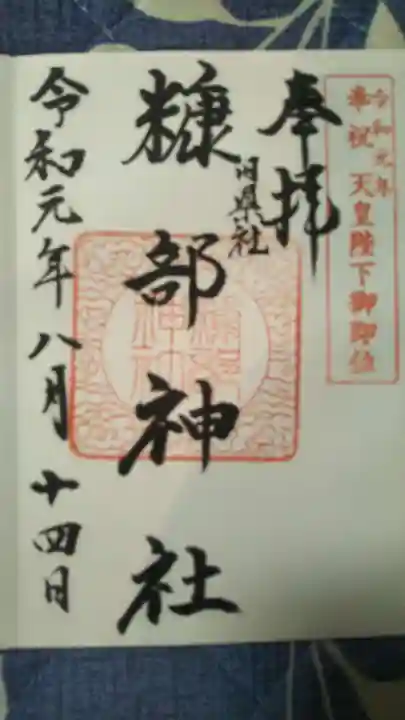 令和元年
奉祝 天皇陛下御即位
奉拝
旧県社
糠部神社
令和元年八月十四日